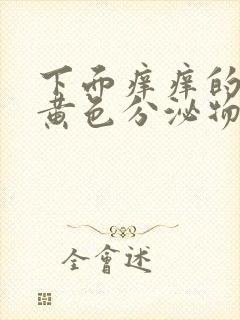 下面痒痒的
黄色分泌物
全會述